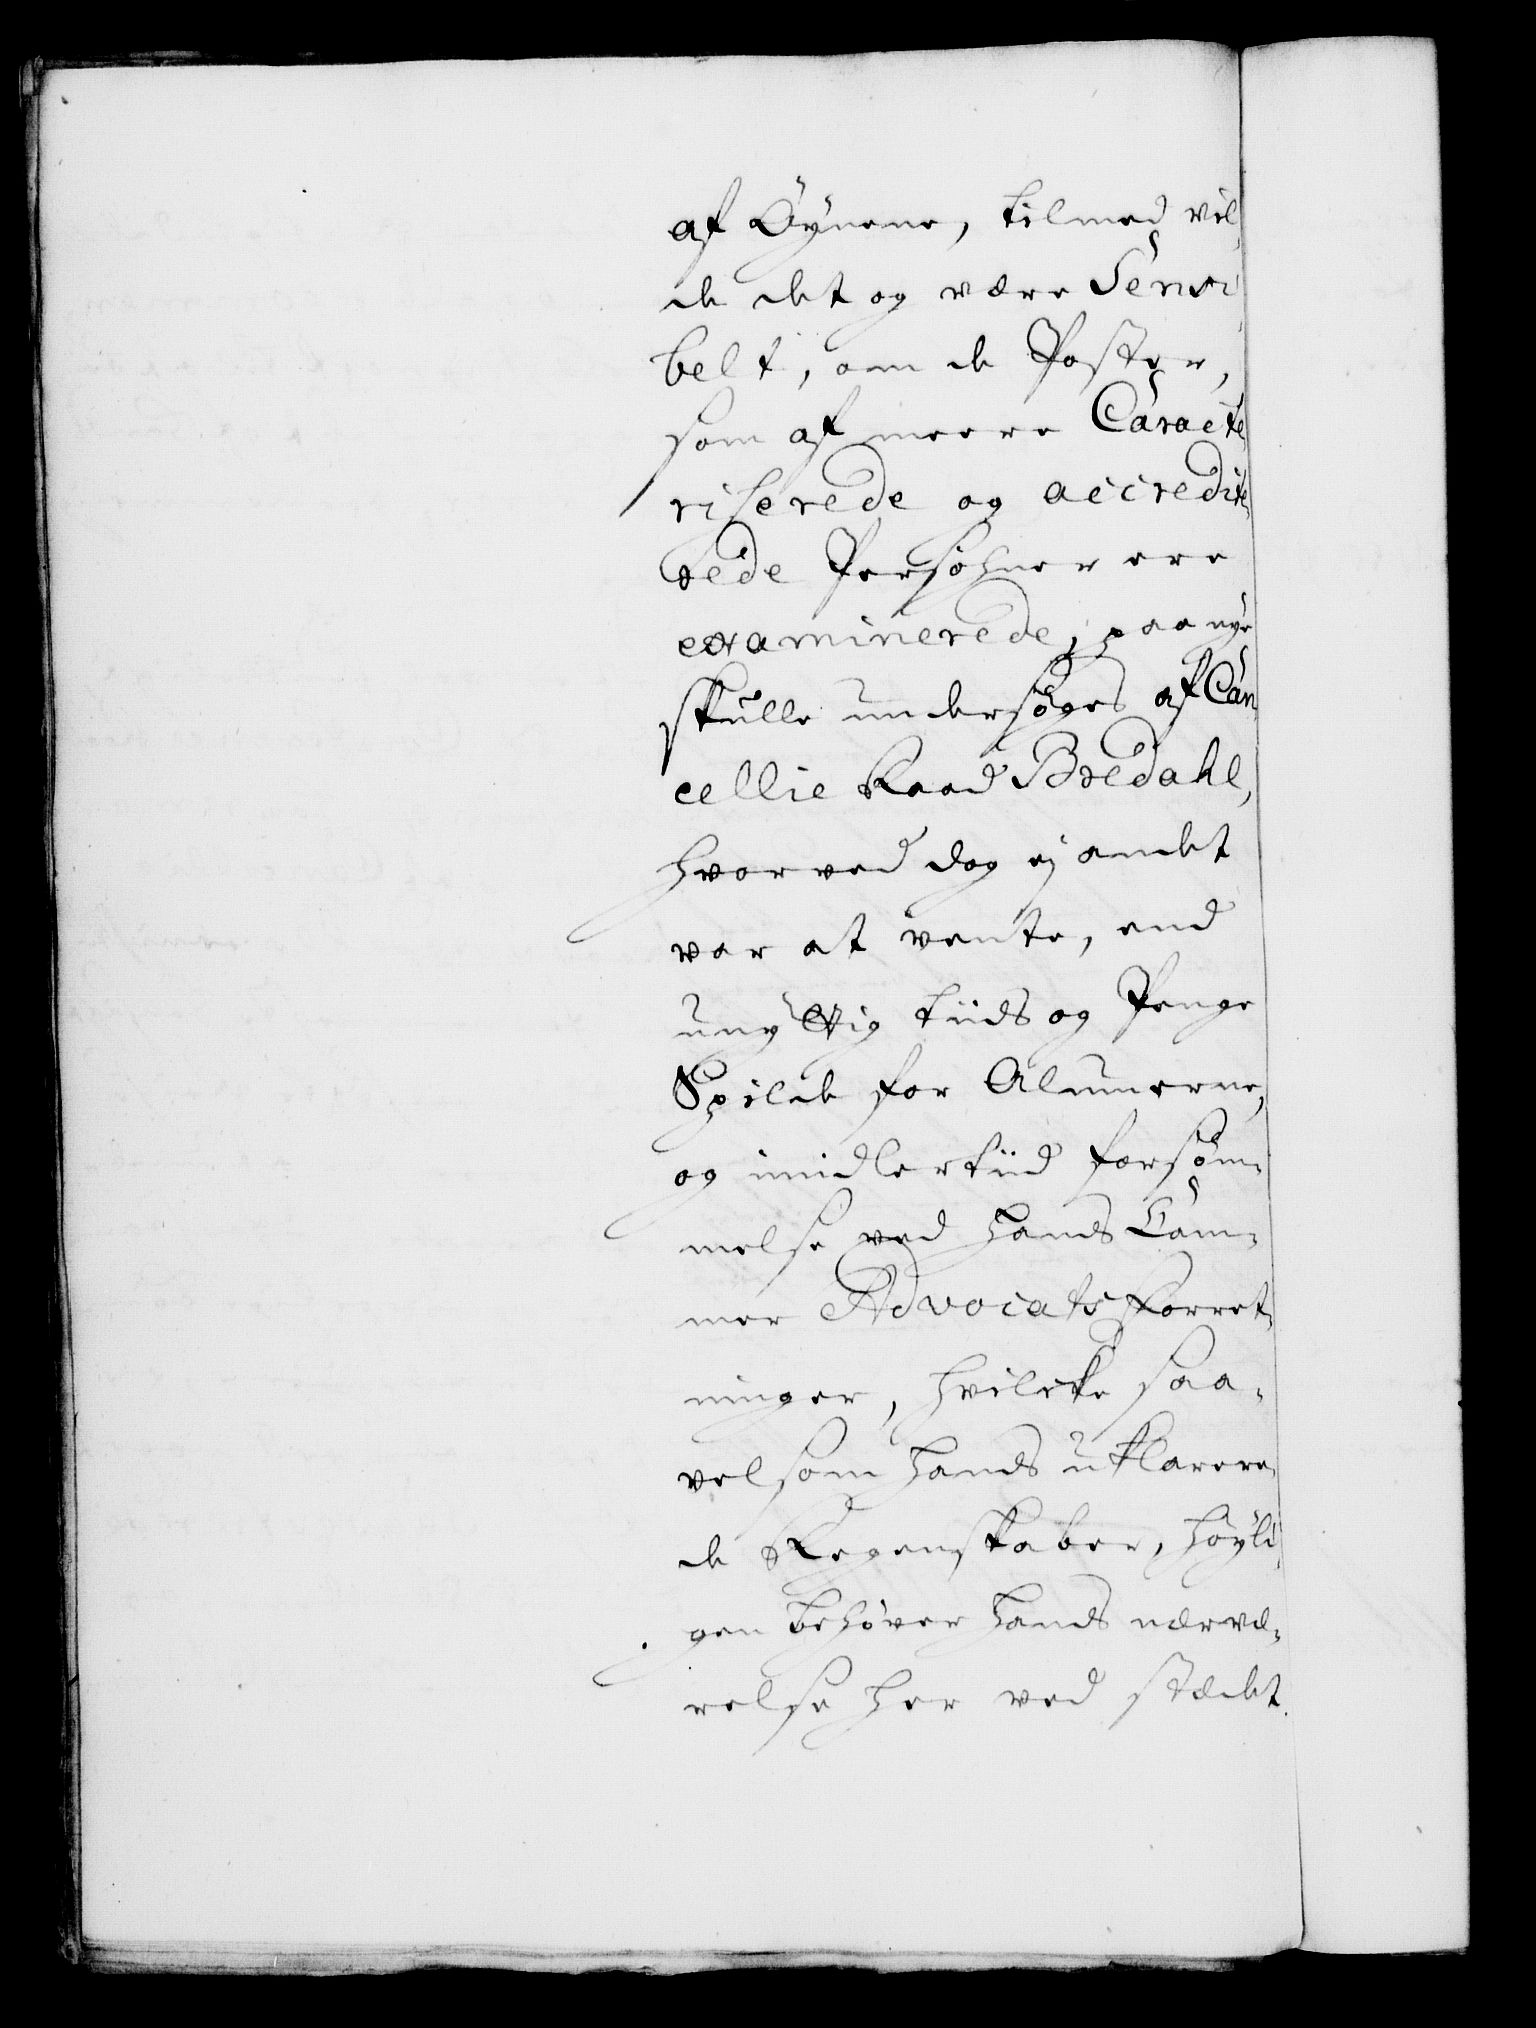 af Øynene, tilmed vil
de det og være Sensi
belt, om de Poster,
som af meere Caracte
riserede og accredite
rede Persohner ere
examinerede, paa nye
skulle undersøges af Can
cellie Raad Bredahl,
hvorved dog ej andet
var at vente, end
unyttig tiids og Penge
Spilde for Almuerne,
og imidlertiid forsøm-
melse ved hands Cam-
mer Advocats forret-
ninger, hvilcke saa-
velsom hands uklarere-
de Regenskaber, høyli
gen behøver hands nærvæ-
relse her ved stædet.